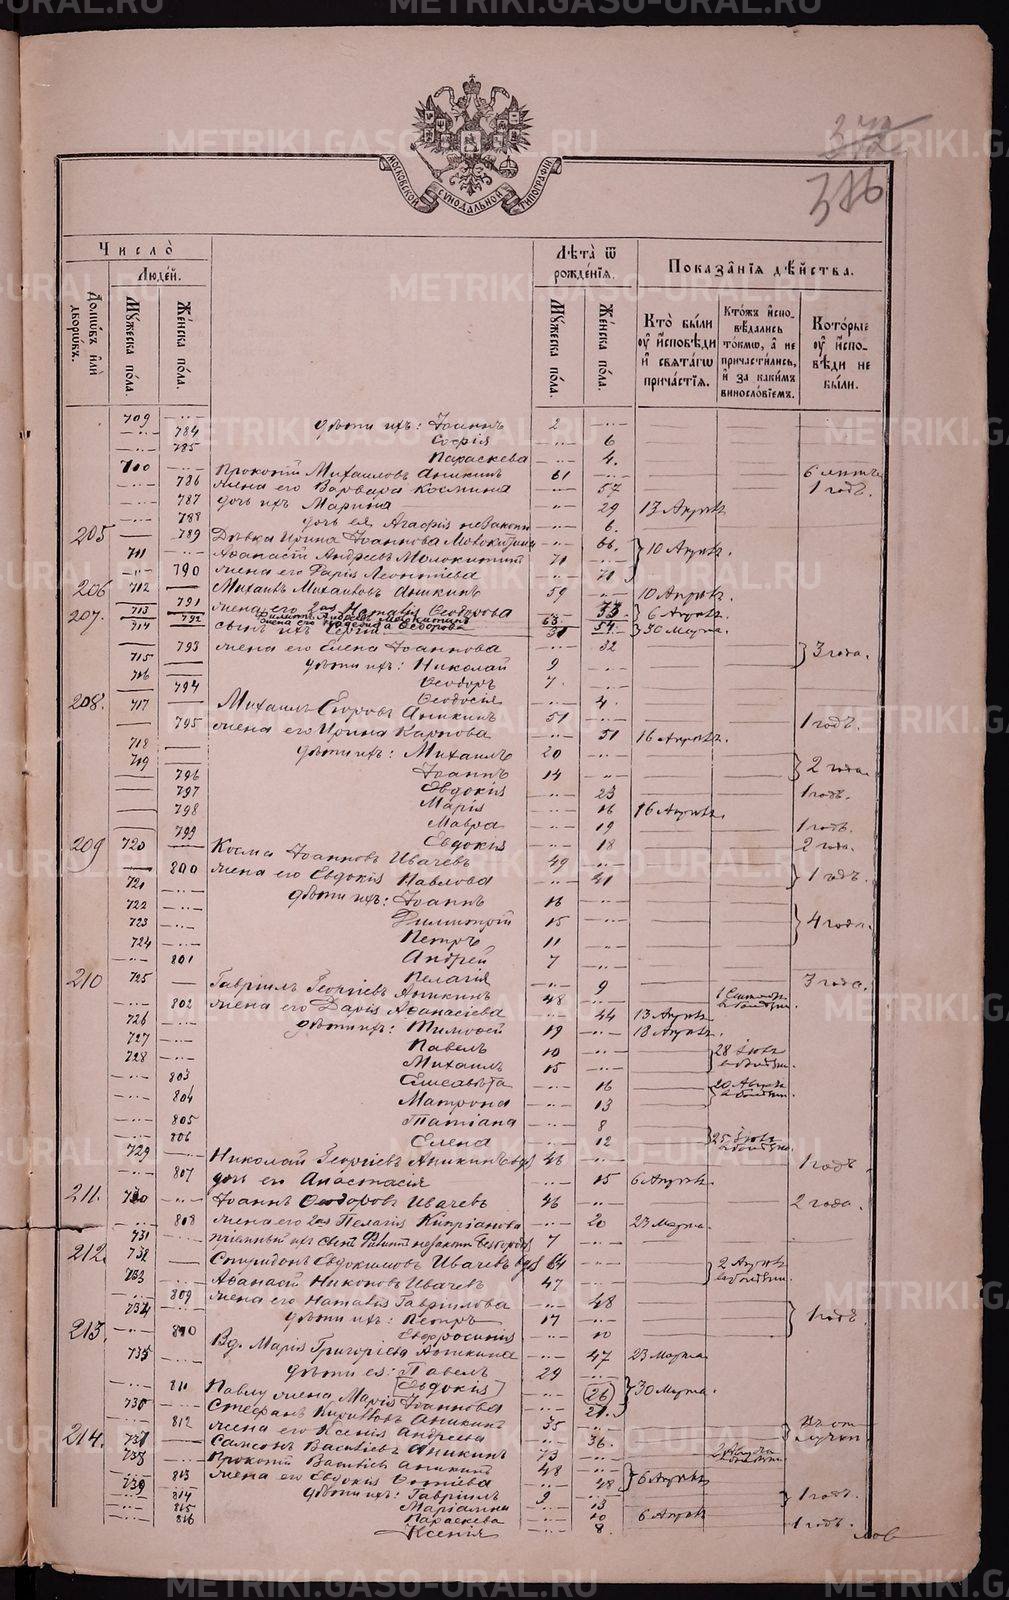 METRIKI.GASO-URAL.RU
372
376
МОСКОВСКОЙ СѴНОДАЛЬНОЙ ТИПОГРАФІИ
Число̀
Люде́й.
Домѡ́въ и҆лѝ дворѡ́въ.
Мꙋ́жеска по́ла.
Же́нска по́ла.
Лѣ́та ѿ рожде́нїѧ.
Мꙋ́жеска по́ла.
Же́нска по́ла.
Показа̑нїѧ дѣ́йства.
Кто̀ бы́ли оу҆ и҆сповѣ́ди и҆ свѧта́гѡ прича́стїѧ.
Кто́жъ и҆сповѣ́дались то́кмѡ, а҆ не причасти́лись, и҆ за каки́мъ винословїемъ.
Кото́рые оу҆ и҆сповѣ́ди не бы́ли.
709 дѣти ихъ: Іоаннъ 2
784 Софія 6
785 Параскева 4.
710 Прокопій Михаиловъ Аникинъ 61 6 лѣтъ
786 жена его Варвара Космина 57 1 годъ.
787 дочь ихъ Марина 29 13 Апрѣля
788 дочь ея Агафія незаконн 6.
205 789 Дѣвка Ирина Іоаннова 66. 10 Апрѣля.
711 Аѳанасій Андреевъ 71
790 жена его Дарія Леонтіева 71
206 712 Михаилъ Михаиловъ Аникинъ 59 10 Апрѣля.
791 жена его 2ая Наталія Ѳеодорова 6 Апрѣля.
207. 713 792 Димитрій Андреевъ 63. 54
714 сынъ ихъ Сергій 31 30 Марта.
793 жена его Елена Іоаннова 32 3 года.
715 дѣти ихъ: Николай 9
716 Ѳеодоръ 7.
794 Ѳеодосія 4.
208. 717 Михаилъ Егоровъ Аникинъ 51 1 годъ.
795 жена его Ирина Карпова 51 16 Апрѣля.
718 дѣти ихъ: Михаилъ 20
719 Іоаннъ 14 2 года.
796 Евдокія 23 1 годъ.
797 Марія 16 16 Апрѣля.
798 Мавра 19 1 годъ.
799 Евдокія 18 2 года.
209 720 Косма Іоанновъ Ивачевъ 49
800 жена его Евдокія Павлова 41 1 годъ.
721 дѣти ихъ: Іоаннъ 16
722 Димитрій 15 4 года.
723 Петръ 11
724 Андрей 7
801 Пелагія 9 3 года.
210 725 Гавріилъ Георгіевъ Аникинъ 48
802 жена его Дарія Аѳанасіева 44 13 Апрѣля
726 дѣти ихъ: Тимоѳей 19 18 Апрѣля.
727 Павелъ 10
728 Михаилъ 15
803 Елисавета 16
804 Матрона 13
805 Татіана 8
806 Елена 12
729 Николай Георгіевъ Аникинъ вдв 46 1 годъ.
807 дочь его Анастасія 15 6 Апрѣля
211. 730 Іоаннъ Ѳеодоровъ Ивачевъ 46 2 года.
808 жена его 2ая Пелагія Кипріанова 20 23 Марта.
731 7
212. 732 Спиридонъ Евдокимовъ Ивачевъ вдв 64 2 Апрѣля
733 Аѳанасій Никоновъ Ивачевъ 47
809 жена его Наталія Гавріилова 48
734 дѣти ихъ: Петръ 17 1 годъ.
810 Евфросинія 10
213. Вд. Марія Григоріева Аникина 47 23 Марта
735 дѣти ея: Павелъ 29
[Евдокія] (26) 30 Марта.
811 Павлу жена Марія Іоаннова 21.
736 Стефанъ Кирилловъ Аникинъ 35 въ отлучкѣ
812 жена его Ксенія Андреева 36.
214. 737 Самсонъ Василіевъ Аникинъ 73
738 Прокопій Василіевъ Аникинъ 48
813 жена его Евдокія 48 6 Апрѣля
739 дѣти ихъ: Гавріилъ 9 1 годъ.
814 Маріамна 13
815 Параскева 10 6 Апрѣля
816 Ксенія 8. 1 годъ.